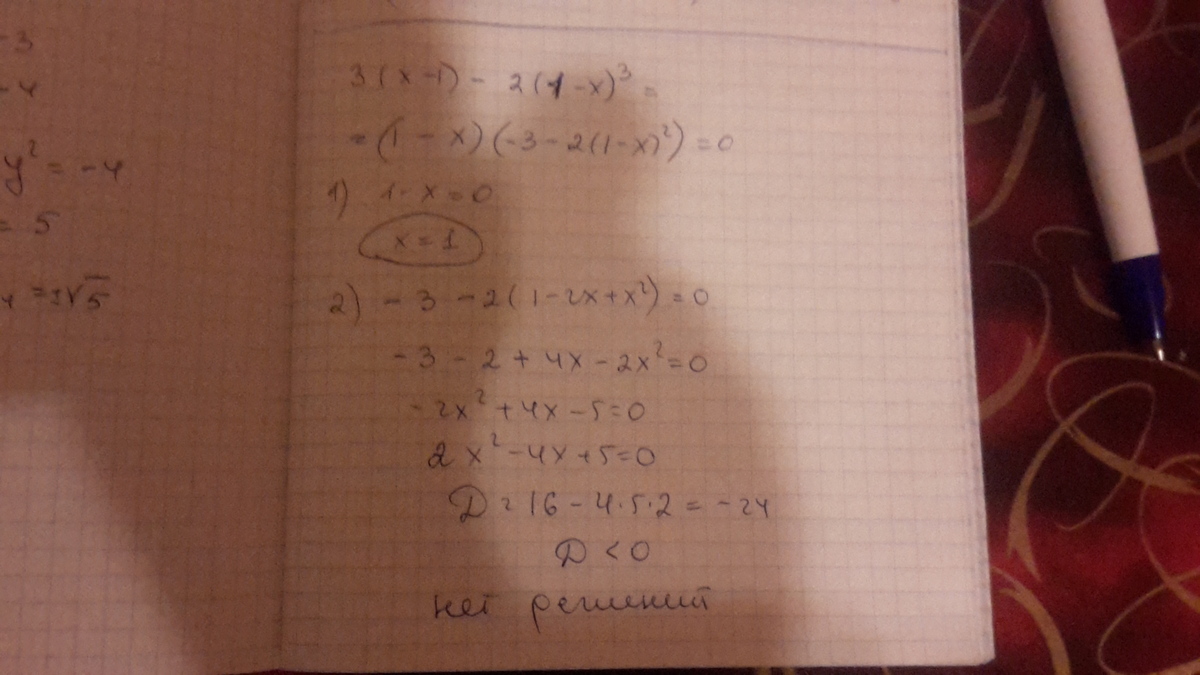 -3
-4
y² = -4
= 5
= ±√5
3(x-1) - 2(1-x)³ =
= (1 - x)(-3-2(1-x)²) = 0
1) 1-x=0
x=1
2) -3-2(1-2x+x²)=0
-3-2+4x-2x²=0
-2x²+4x-5=0
2x²-4x+5=0
D=16-4·5·2=-24
D<0
нет решений